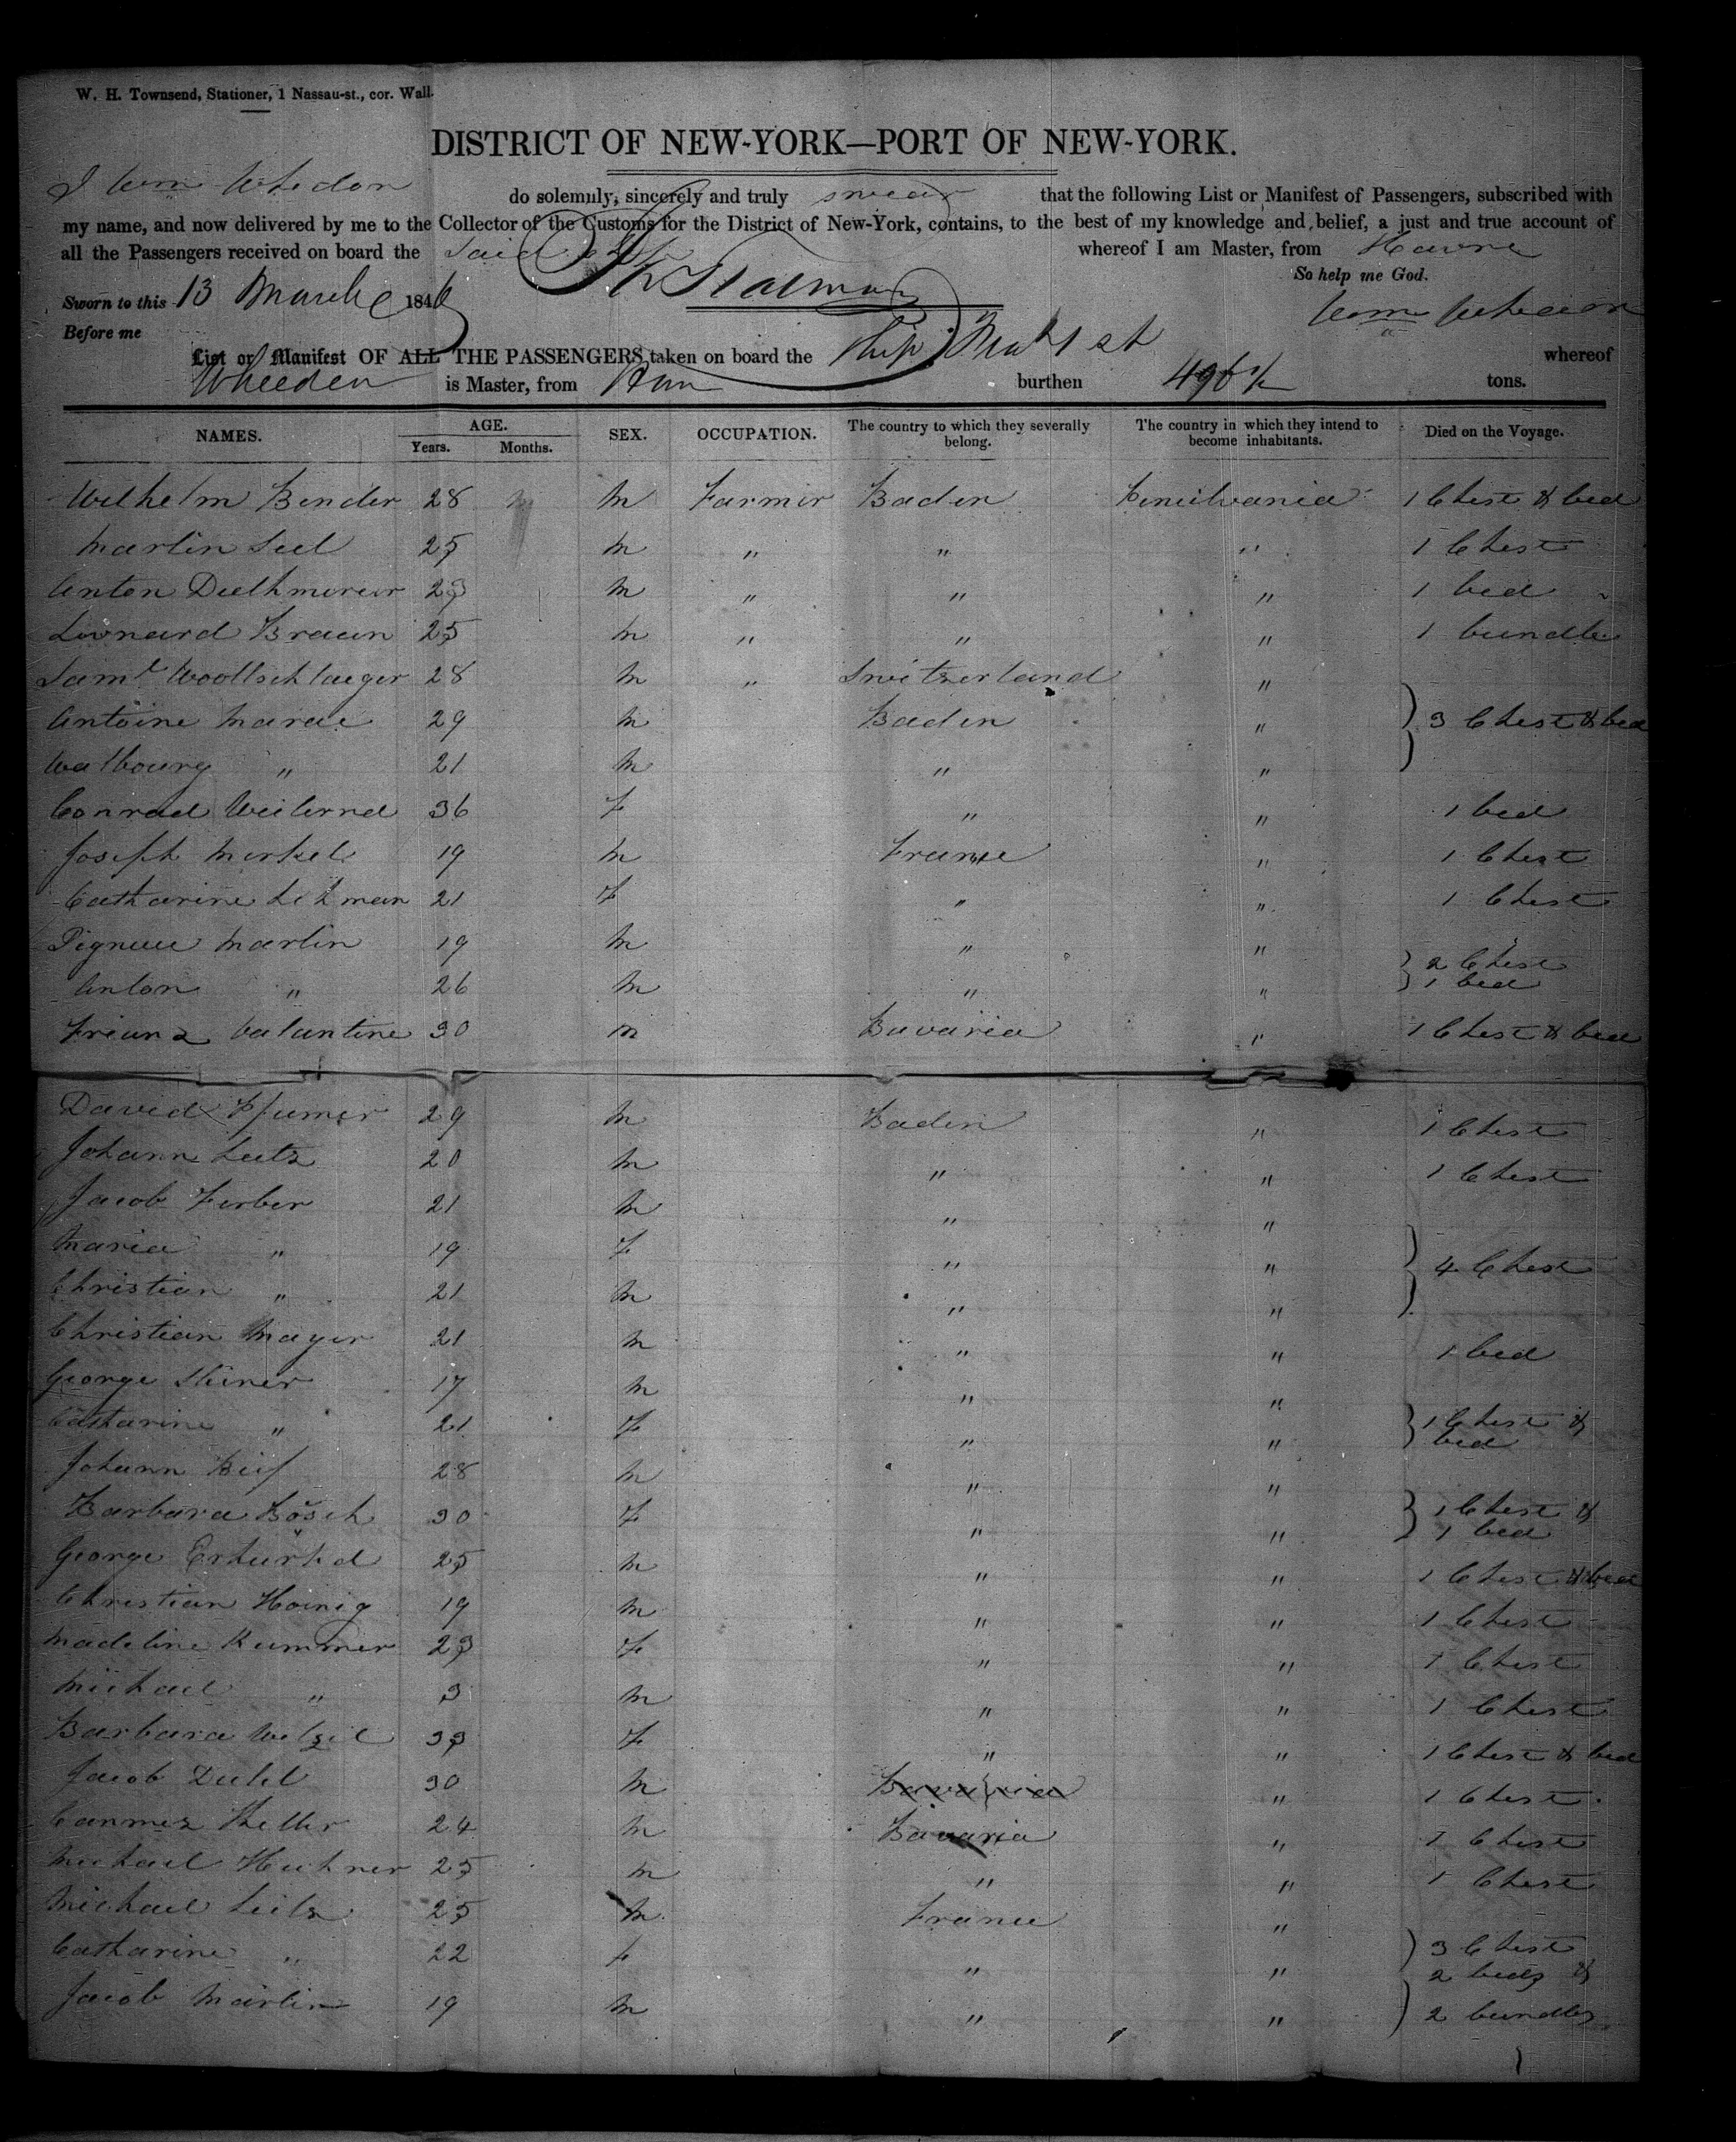 W. H. Townsend, Stationer, 1 Nassau-st., cor. Wall.
DISTRICT OF NEW-YORK—PORT OF NEW-YORK.
I Wm Whedon do solemnly, sincerely and truly swear that the following List or Manifest of Passengers, subscribed with
my name, and now delivered by me to the Collector of the Customs for the District of New-York, contains, to the best of my knowledge and belief, a just and true account of
all the Passengers received on board the Said Ship whereof I am Master, from Havre
So help me God.
Sworn to this 13 March 1846
Before me
List or Manifest OF ALL THE PASSENGERS taken on board the Ship whereof
Wheeden is Master, from burthen 496 tons.
NAMES. AGE. SEX. OCCUPATION. The country to which they severally belong. The country in which they intend to become inhabitants. Died on the Voyage.
Years. Months.
Wilhelm Bender 28 M Farmer Baden 1 Chest & bed
Martin Seel 25 M " " " 1 Chest
Anton 23 M " " " 1 bed
Leonard Braun 25 M " " " 1 bundle
Saml Woollschlaeger 28 M " Switzerland "
Antoine Marae 29 M Baden " 3 Chest & bed
Walbourg " 21 M " "
Conrad 36 F " " 1 bed
Joseph Merkel 19 M France " 1 Chest
Catharine Lehman 21 F " " 1 Chest
Martin 19 M " " 2 Chest
Anton " 26 M " " 1 bed
Valantine 30 M Bavaria " 1 Chest & bed
David 29 M Baden " 1 Chest
Johann Lutz 20 M " " 1 Chest
Jacob Ferber 21 M " "
Maria " 19 F " " 4 Chest
Christian " 21 M " "
Christian Mayer 21 M " " 1 bed
George Steiner 17 M " "
Catharine " 21 F " " 1 Chest & bed
Johann 28 M " "
Barbara Bösch 30 F " " 1 Chest & 1 bed
George 25 M " " 1 Chest & bed
Christian Hoinig 19 M " " 1 Chest
Madeline Kummer 23 F " " 1 Chest
Michael " 3 M " " 1 Chest
Barbara Welzel 33 F " " 1 Chest & bed
Jacob 30 M Bavaria " 1 Chest
Keller 24 M Bavaria " 1 Chest
Michael 25 M " " 1 Chest
Michael Leitz 25 M France "
Catharine " 22 F " " 3 Chest
2 beds &
Jacob Martin 19 M " " 2 bundles